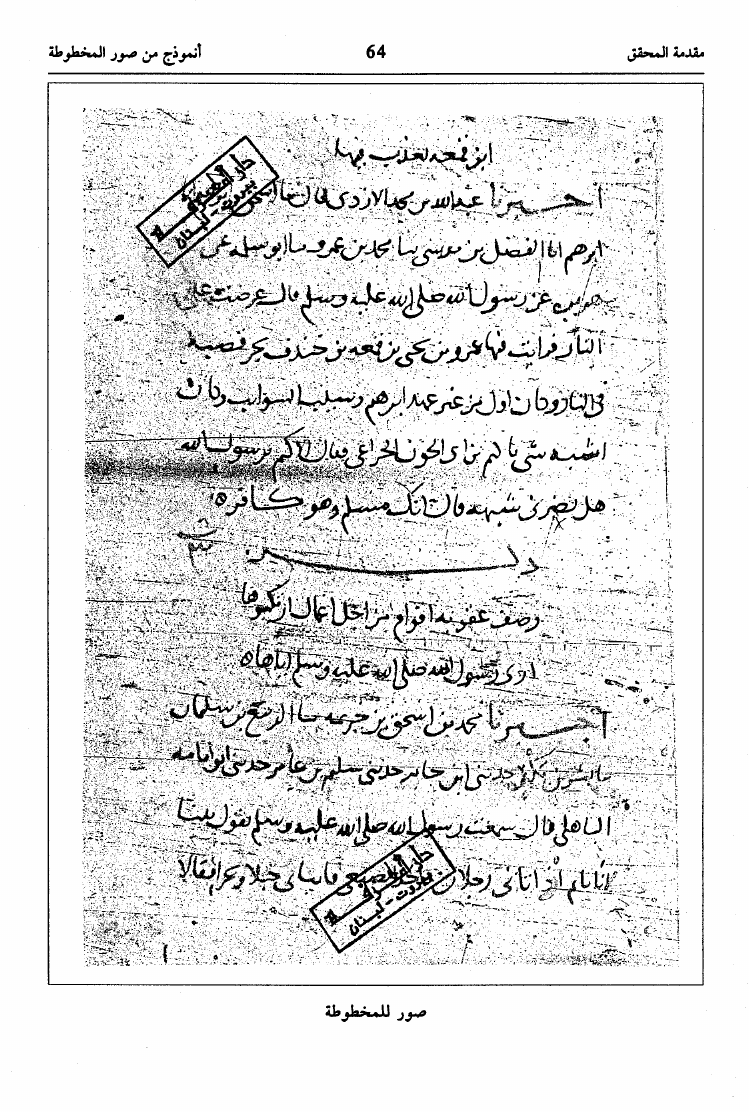 مقدمة المحقق 64 أنموذج من صور المخطوطة
ابن قمعه يعذب فيها
اخبرنا عبد الله بن محمد الازدى قال
ابرهيم انا الفضل بن موسى محمد بن عمرو ابو سلمه عن
هريره عن رسول الله صلى الله عليه وسلم قال عرضت على
النار فرايت فيها عمرو بن لحى بن قمعه بن خندف يجر قصبه
فى النار وكان اول من غير عهد ابرهيم وسيب السوايب وكان
اشبه شى باكثم بن ابى الجون الخزاعى فقال الاكثم يرسول الله
هل يضرنى شبهه قال انك مسلم وهو كافر
ذكر
وصف عقوبه اقوام من اجل اعمال ارتكبوها
ارى رسول الله صلى الله عليه وسلم اياها
اخبرنا محمد بن اسحق بن خزيمه الربيع بن سليمن
بشر بن بكر حدثنى ابن جابر حدثنى سليم بن عامر حدثنى ابو امامه
الباهلى قال سمعت رسول الله صلى الله عليه وسلم يقول بينا
انا نايم اذ اتانى رجلان فاتيا بى جبلا وعرا فقالا
دار المعرفة
بيروت - لبنان
صور للمخطوطة